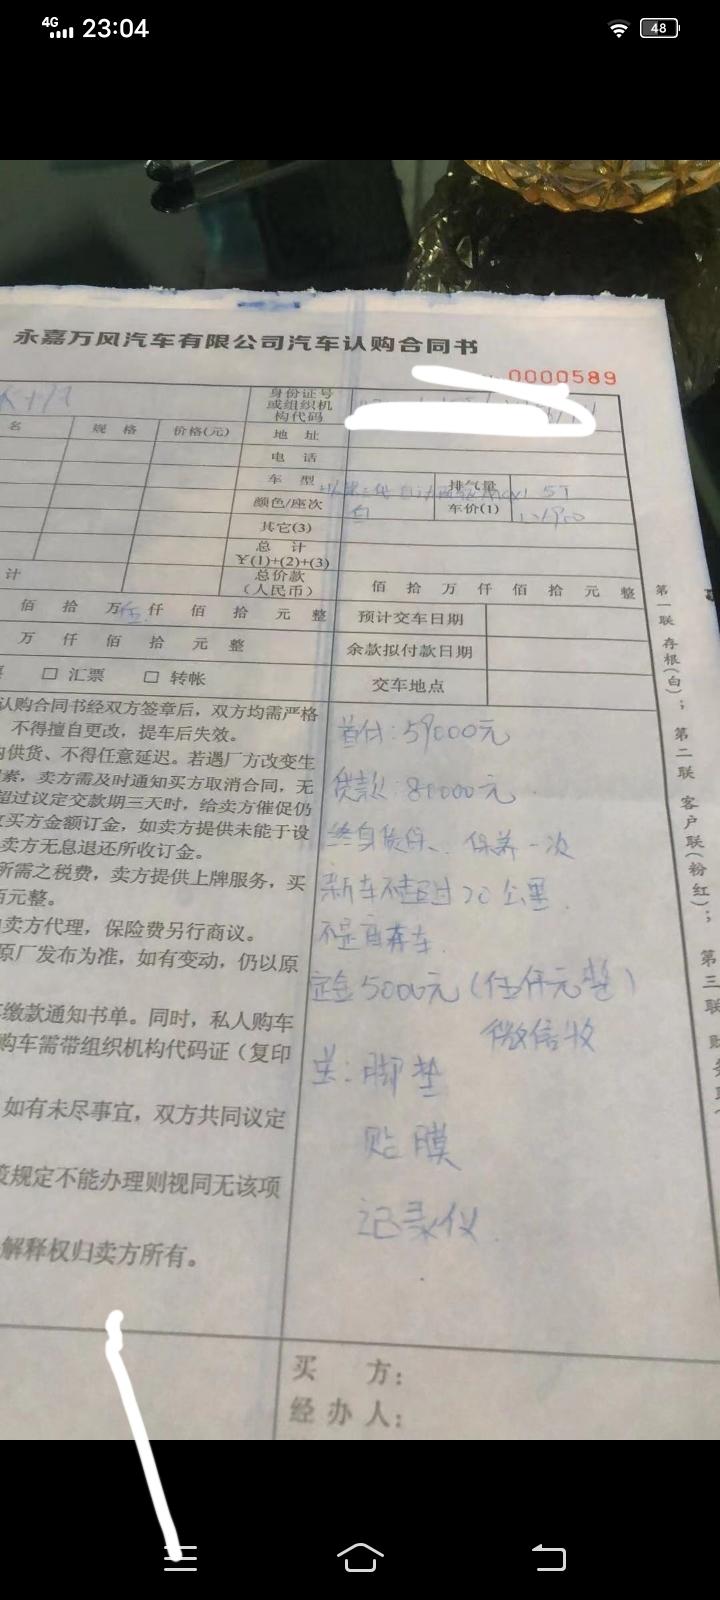 4G 23:04 48
永嘉万风汽车有限公司汽车认购合同书
0000589
身份证号
或组织机
构代码
名 规格 价格(元) 地址
电话
车型 排气量 5T
颜色/座次 白 车价(1)
其它(3)
总计
¥(1)+(2)+(3)
计 总价款
(人民币) 佰拾万仟佰拾元整
佰拾万伍仟佰拾元整 预计交车日期
万仟佰拾元整 余款拟付款日期
□ 汇票 □ 转帐 交车地点
认购合同书经双方签章后，双方均需严格
不得擅自更改，提车后失效。
供货、不得任意延迟。若遇厂方改变生
素，卖方需及时通知买方取消合同，无
超过议定交款期三天时，给卖方催促仍
买方金额订金，如卖方提供未能于设
卖方无息退还所收订金。
所需之税费，卖方提供上牌服务，买
百元整。
卖方代理，保险费另行商议。
原厂发布为准，如有变动，仍以原
缴款通知书单。同时，私人购车
购车需带组织机构代码证（复印
如有未尽事宜，双方共同议定
规定不能办理则视同无该项
解释权归卖方所有。
首付：59000元
贷款：80000元
终身质保、保养一次
新车不超过20公里
不是商库车
定金5000元（伍仟元整）
微信收
送：脚垫
贴膜
记录仪
买方：
经办人：
第一联 存根(白)； 第二联 客户联(粉红)； 第三联